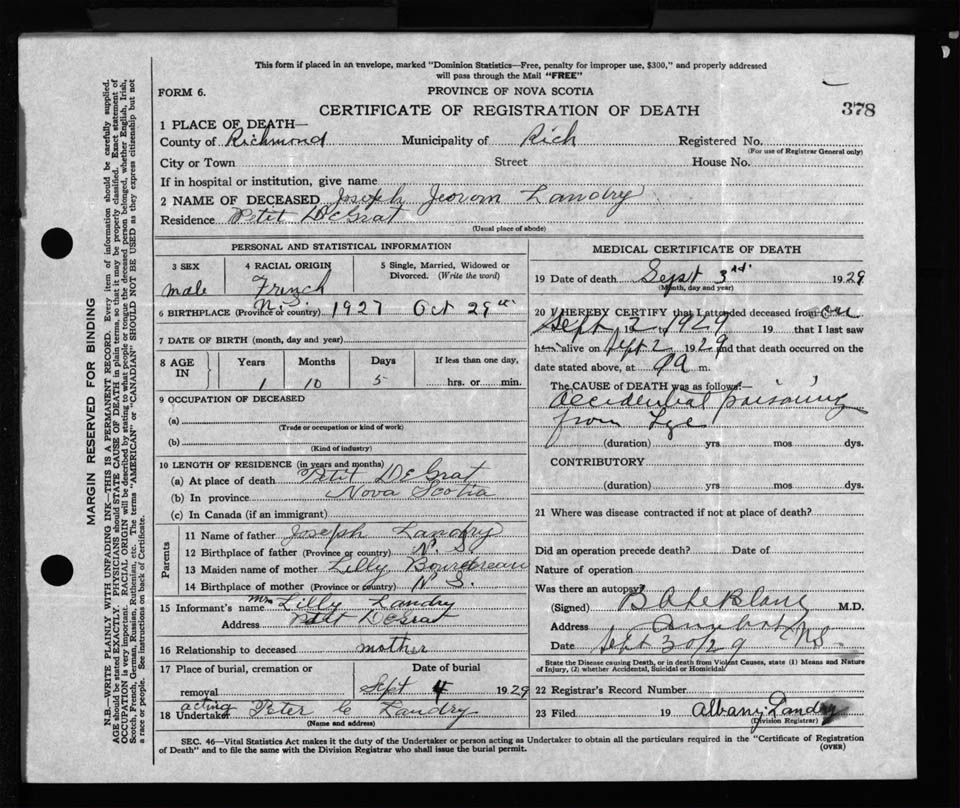 This form if placed in an envelope, marked "Dominion Statistics—Free, penalty for improper use, $300," and properly addressed
will pass through the Mail "FREE"
FORM 6.
PROVINCE OF NOVA SCOTIA
CERTIFICATE OF REGISTRATION OF DEATH
378
1 PLACE OF DEATH—
County of Richmond Municipality of Rich Registered No.
(For use of Registrar General only)
City or Town Street House No.
If in hospital or institution, give name
2 NAME OF DECEASED Joseph Jeorom Landry
Residence Petit DeGrat
(Usual place of abode)
MARGIN RESERVED FOR BINDING
N.B.—WRITE PLAINLY WITH UNFADING INK—THIS IS A PERMANENT RECORD. Every item of information should be carefully supplied.
AGE should be stated EXACTLY. PHYSICIANS should STATE CAUSE OF DEATH in plain terms, so that it may be properly classified. Exact statement of
OCCUPATION is very important. RACIAL ORIGIN will be described by stating to what people or tongue the deceased person belonged, whether English, Irish,
Scotch, French, German, Russian, Ruthenian, etc. The terms "AMERICAN" or "CANADIAN" SHOULD NOT BE USED as they express citizenship but not
a race or people. See instructions on back of Certificate.
PERSONAL AND STATISTICAL INFORMATION
3 SEX 4 RACIAL ORIGIN 5 Single, Married, Widowed or
Divorced. (Write the word)
male French
6 BIRTHPLACE (Province or country) N.S. 1927 Oct 29th
7 DATE OF BIRTH (month, day and year)
8 AGE IN Years Months Days If less than one day,
1 10 5 hrs. or min.
9 OCCUPATION OF DECEASED
(a)
(Trade or occupation or kind of work)
(b)
(Kind of industry)
10 LENGTH OF RESIDENCE (in years and months)
(a) At place of death Petit DeGrat
(b) In province Nova Scotia
(c) In Canada (if an immigrant)
Parents
11 Name of father Joseph Landry
12 Birthplace of father (Province or country) N.S.
13 Maiden name of mother Lilly Boudreau
14 Birthplace of mother (Province or country) N S.
15 Informant's name Mrs Lilly Landry
Address Petit DeGrat
16 Relationship to deceased mother
17 Place of burial, cremation or Date of burial
removal Sept 4 1929
acting
18 Undertaker Peter C Landry
(Name and address)
MEDICAL CERTIFICATE OF DEATH
19 Date of death Sept 3rd. 1929
(Month, day and year)
20 I HEREBY CERTIFY that I attended deceased from on
Sept 2, 1929 19 that I last saw
him alive on Sept 2 1929 and that death occurred on the
date stated above, at m.
The CAUSE of DEATH was as follows:—
Accidental poisoning
from Lye
(duration) yrs mos dys.
CONTRIBUTORY
(duration) yrs. mos. dys.
21 Where was disease contracted if not at place of death?
Did an operation precede death? Date of
Nature of operation
Was there an autopsy?
(Signed) B A LeBlanc M.D.
Address Arichat
Date Sept 30/29 NS
State the Disease causing Death, or in death from Violent Causes, state (1) Means and Nature
of Injury, (2) whether Accidental, Suicidal or Homicidal
22 Registrar's Record Number
23 Filed 19 Albany Landry
(Division Registrar)
SEC. 46—Vital Statistics Act makes it the duty of the Undertaker or person acting as Undertaker to obtain all the particulars required in the "Certificate of Registration
of Death" and to file the same with the Division Registrar who shall issue the burial permit.
(OVER)